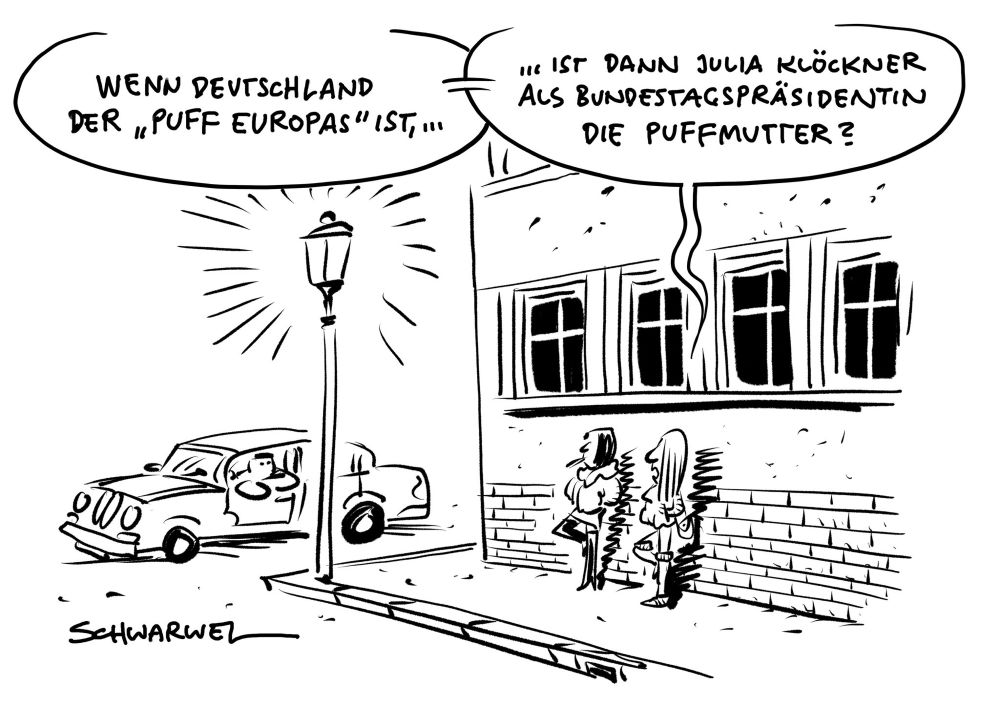 WENN DEUTSCHLAND
DER „PUFF EUROPAS" IST,...
...IST DANN JULIA KLÖCKNER
ALS BUNDESTAGSPRÄSIDENTIN
DIE PUFFMUTTER?
SCHWARWEL